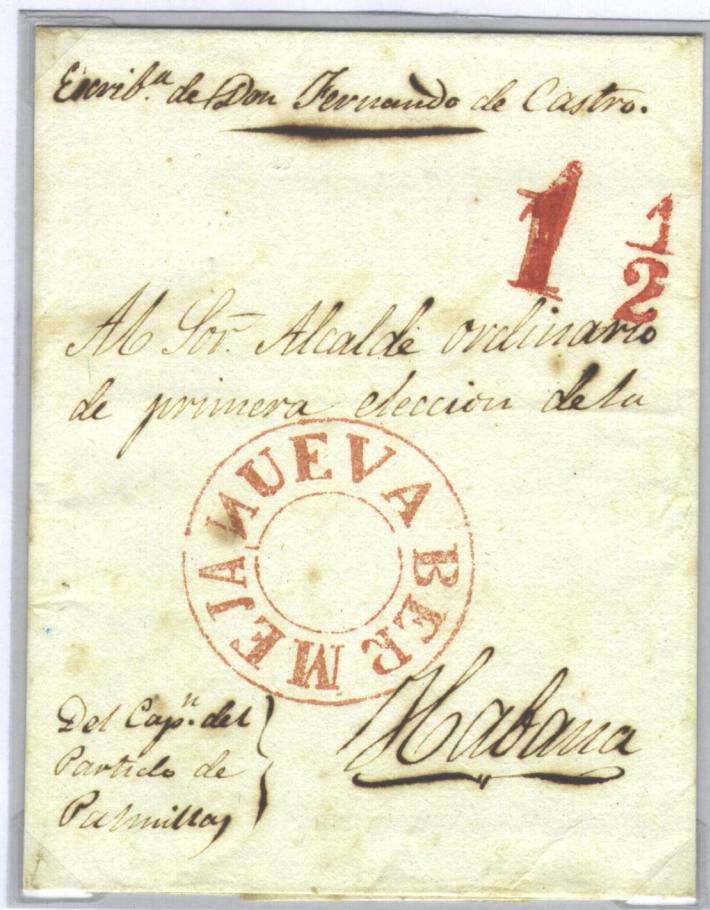 Escrib.ª de Don Fernando de Castro.
1 1/2
Al Sor. Alcalde ordinario
de primera eleccion de la
NUEVA BERMEJA
Habana
Del Cap.n del
Partido de
Palmillas